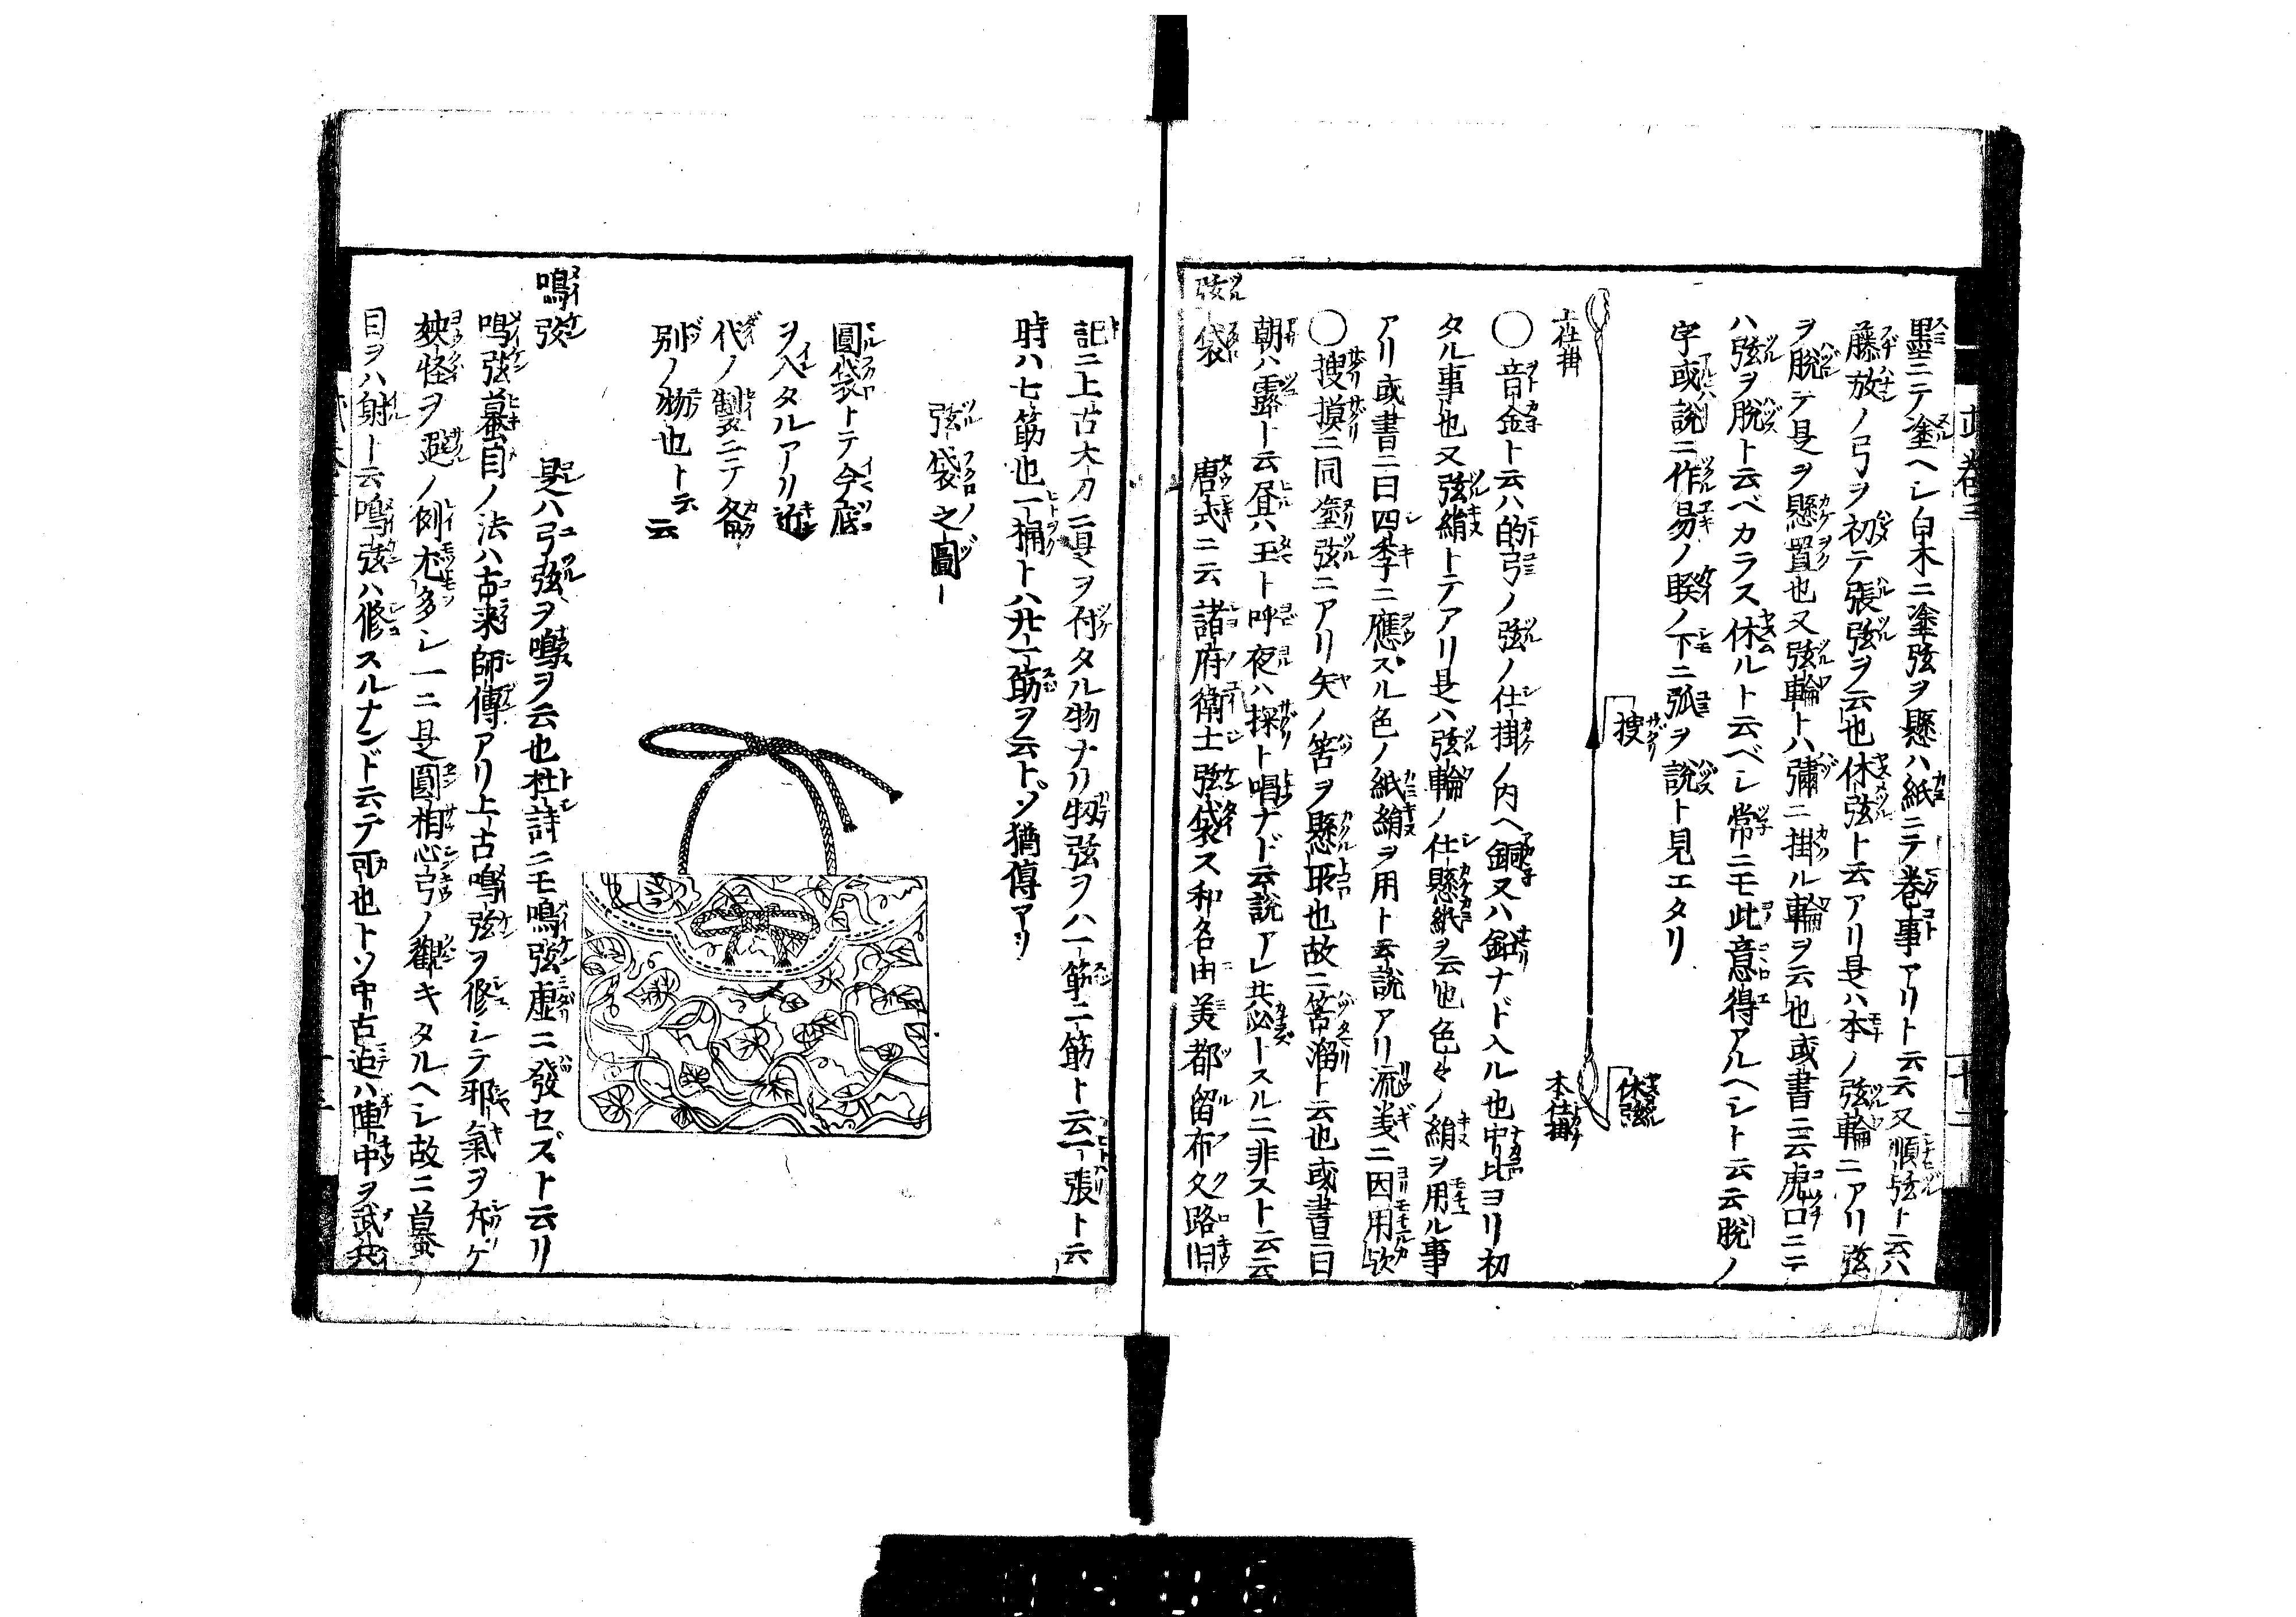 墨ニテ塗ヘシ白木ニ塗弦ヲ懸ハ紙ニテ巻事アリト云云又順弦ト云ハ
藤放ノ弓ヲ初テ張弦ヲ云也休弦ト云アリ是ハ本ノ弦輪ニアリ弦
ヲ脱テ是ヲ懸置也又弦輪トハ彇ニ掛ル輪ヲ云也或書ニ云虎口ニテ
ハ弦ヲ脱ト云ベカラス休ルト云ベシ常ニモ此意得アルヘシト云云脱ノ
字或説ニ作易ノ睽ノ下ニ弧ヲ説ト見エタリ
捜
休弦
上仕掛
本仕掛
〇音金ト云ハ的弓ノ弦ノ仕掛ノ内ヘ銅又ハ鉛ナド入ル也中比ヨリ初
タル事也又弦絹トテアリ是ハ弦輪ノ仕懸紙ヲ云也色々ノ絹ヲ用ル事
アリ或書ニ曰四季ニ應スル色ノ紙絹ヲ用ト云説アリ流義ニ因用欤
〇捜摸ニ同塗弦ニアリ矢ノ筈ヲ懸取也故ニ筈溜ト云也或書ニ曰
朝ハ露ト云昼ハ玉ト呼夜ハ探ト唱ナド云説アレ共必トスルニ非スト云云
弦袋 唐式ニ云諸府衛士弦袋ス和名由美都留布久路旧
記ニ上古大刀ニ是ヲ付タル物ナリ扨弦ヲハ一筋二筋ト云一張ト云
時ハ七筋也一桶トハ廿一筋ヲ云トゾ猶傳アリ
弦袋之圖
圓袋トテ今底
ヲ入タルアリ近
代ノ製ニテ各
別ノ物也ト云云
鳴弦 是ハ弓弦ヲ鳴ヲ云也杜詩ニモ鳴弦虚ニ發セズト云リ
鳴弦蟇目ノ法ハ古来師傳アリ上古鳴弦ヲ修シテ邪氣ヲ
妖怪ヲ避ノ例尤多シ一ニ是圓相心弓ノ觀キタルヘシ故ニ蟇
目ヲハ射ト云鳴弦ハ修スルナンド云テ可也トソ中古迄ハ陣中ヲ武